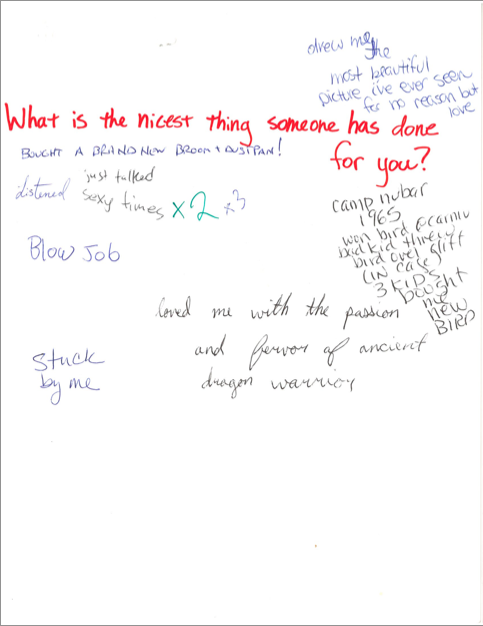 drew me the
most beautiful
picture i've ever seen
for no reason but
love
What is the nicest thing someone has done
for you?
BOUGHT A BRAND NEW BROOM + DUSTPAN!
just talked
listened
sexy times x2 x3
Blow Job
camp nubar
1965
won bird @carniv
bad kid threw
bird over cliff
(IN cage)
3 KIDS
bought
me
new
BIRD
loved me with the passion
and fervor of ancient
dragon warrior
Stuck
by me